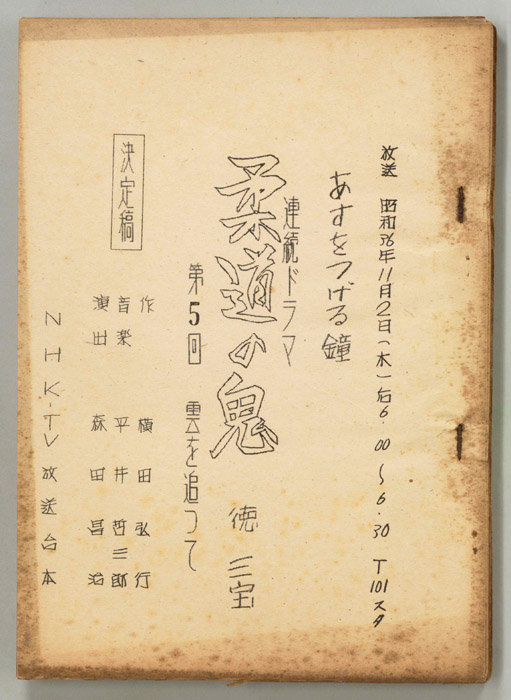 放送 昭和36年11月2日(木)后6.00〜6.30 T101スタ
あすをつげる鐘
連続ドラマ
柔道の鬼 徳三宝
第5回 雲を追つて
決定稿
作 横田弘行
音楽 平井哲三郎
演出 森田昌治
NHK-TV放送台本